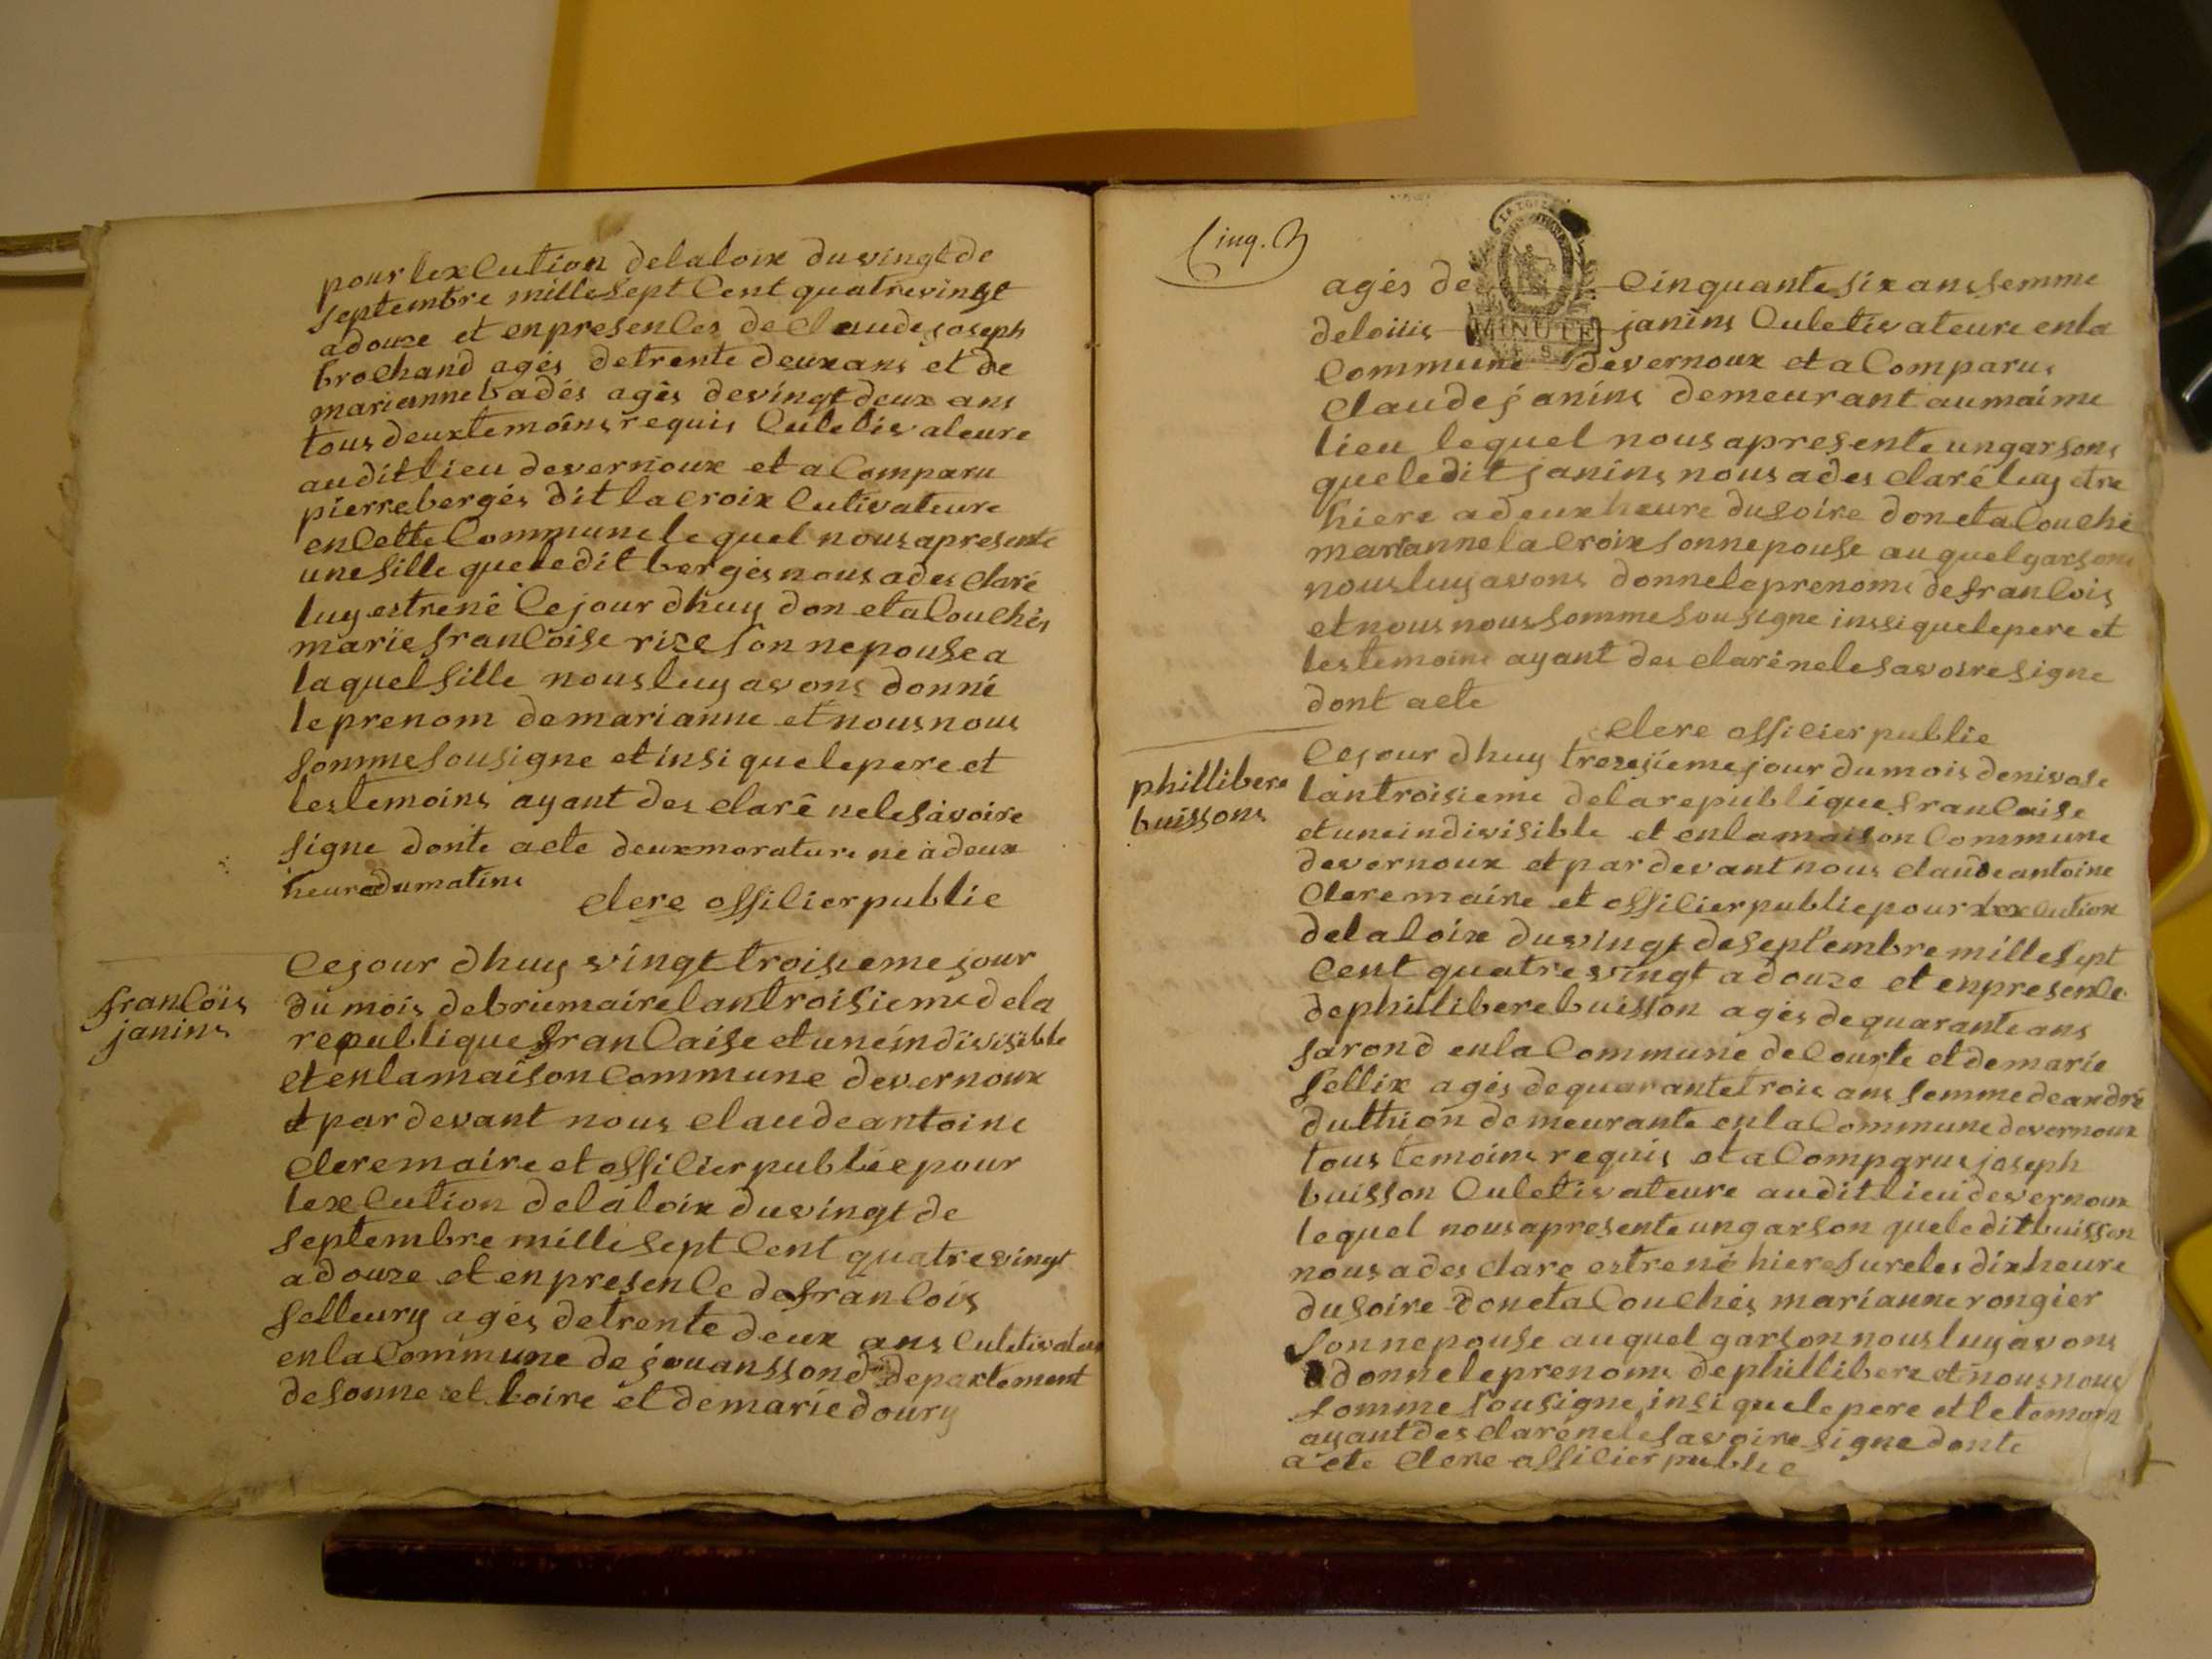 pour lexCution delaloix du vingt de
septembre mille sept Cent quatrevingt
adouze et en presenCes de claude joseph
brochand agés de trente deux ans et de
marianne badés agés de vingt deux ans
tous deux temoins requis Culetivateure
audit lieu devernoux et a Comparu
pierre bergés dit lacroix Cutivateure
en Cette Commune le quel nous apresente
une fille que ledit bergés nous a des claré
luy estrené Cejour dhuy don eta Couchés
marie franCoise rize son nepouse a
laquel fille nous luy avons donné
le prenom de marianne et nous nous
somme sousigne et insi que le pere et
les temoins ayant des claré ne le savoire
signe donte acte deux morature né a deux
heure du matins
clere offiCier public
françois
janins
Cejour dhuy vingt troisieme jour
du mois de briumaire lan troisieme dela
republique franCaise et une indivisible
et en la maison Commune devernoux
et par devant nous claude antoine
clere maire et offiCier public pour
lexCution delaloix du vingt de
septembre mille sept Cent quatrevingt
adouze et en presenCe de franCois
felleury agés de trente deux ans Culetivateur
en la Commune de jouanssond departement
de sonne et loire et de marie doury
Cinq.
agés de cinquante six ans femme
MINUTE
de loiiis janins Culetivateure en la
Commune devernoux et a Comparus
claude janins demeurant au maime
lieu lequel nous apresente un garsons
que ledit janins nous a des claré luy etre
hiere a deux heure du soire don eta Couché
marianne lacroix sonnepouse au quel garsons
nous luy avons donne le prenoms de franCois
et nous nous somme sousigne inssi que le pere et
les temoins ayant des claré ne le savoire signe
dont acte
clere offiCier public
phillibere
buissons
Cejour dhuy trezejieme jour du mois denivose
lan troisieme dela republique franCaise
et une indivisible et en la maison Commune
devernoux et par devant nous claude antoine
clere maire et offiCier public pour lexCution
delaloix du vingt de septembre mille sept
Cent quatrevingt adouze et en presenCe
de phillibere buisson agés de quarante ans
farond en la Commune de Courte et de marie
fellix agés de quarante trois ans femme de andré
duthion demeurante en la Commune devernoux
tous temoins requis et a Comparus joseph
buisson Culetivateure audit lieu devernoux
lequel nous apresente un garson que ledit buisson
nous a des clare estrené hiere sure les dix heure
du soire don eta Couchés marianne rongier
sonnepouse au quel garson nous luy avons
donne le prenoms de phillibere et nous nous
somme sousigne insi que le pere et le temoin
ayant des claré ne le savoire signe donte
acte clere offiCier public